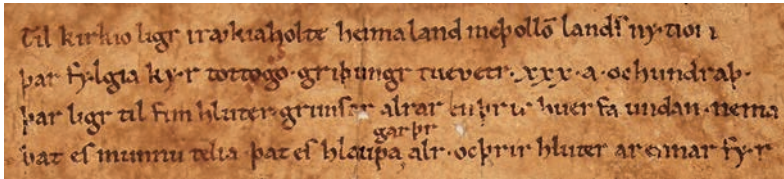 Til kirkio ligr i rækiaholte heimaland meþ ollō landſ ny·tiom
þar fy·lgia ky·r tottogo·griþungr tuevetr·xxx·a·oc hundraþ·
þar ligr til fim hluter·grimſar alrar en þrir huerfa undan·nema
garþr
þat eſ munnu telia þat eſ hlaupa alr·oc þrir hluter arennar fy·r